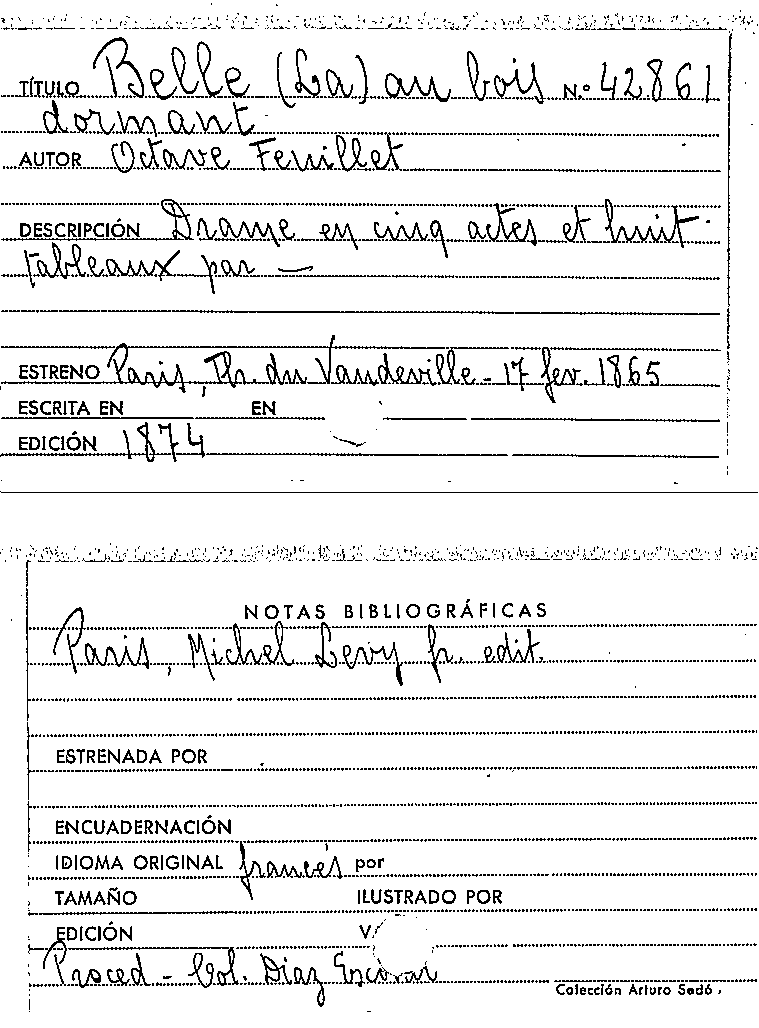 TÍTULO Belle (La) au bois N.º 42861
dormant
AUTOR Octave Feuillet
DESCRIPCIÓN Drame en cinq actes et huit
tableaux par —
ESTRENO Paris, Th. du Vaudeville - 17 fev. 1865
ESCRITA EN EN
EDICIÓN 1874
NOTAS BIBLIOGRÁFICAS
Paris, Michel Levy fr. edit.
ESTRENADA POR
ENCUADERNACIÓN
IDIOMA ORIGINAL francés por
TAMAÑO ILUSTRADO POR
EDICIÓN
Proced - Col. Diaz Escovar
Colección Arturo Sedó